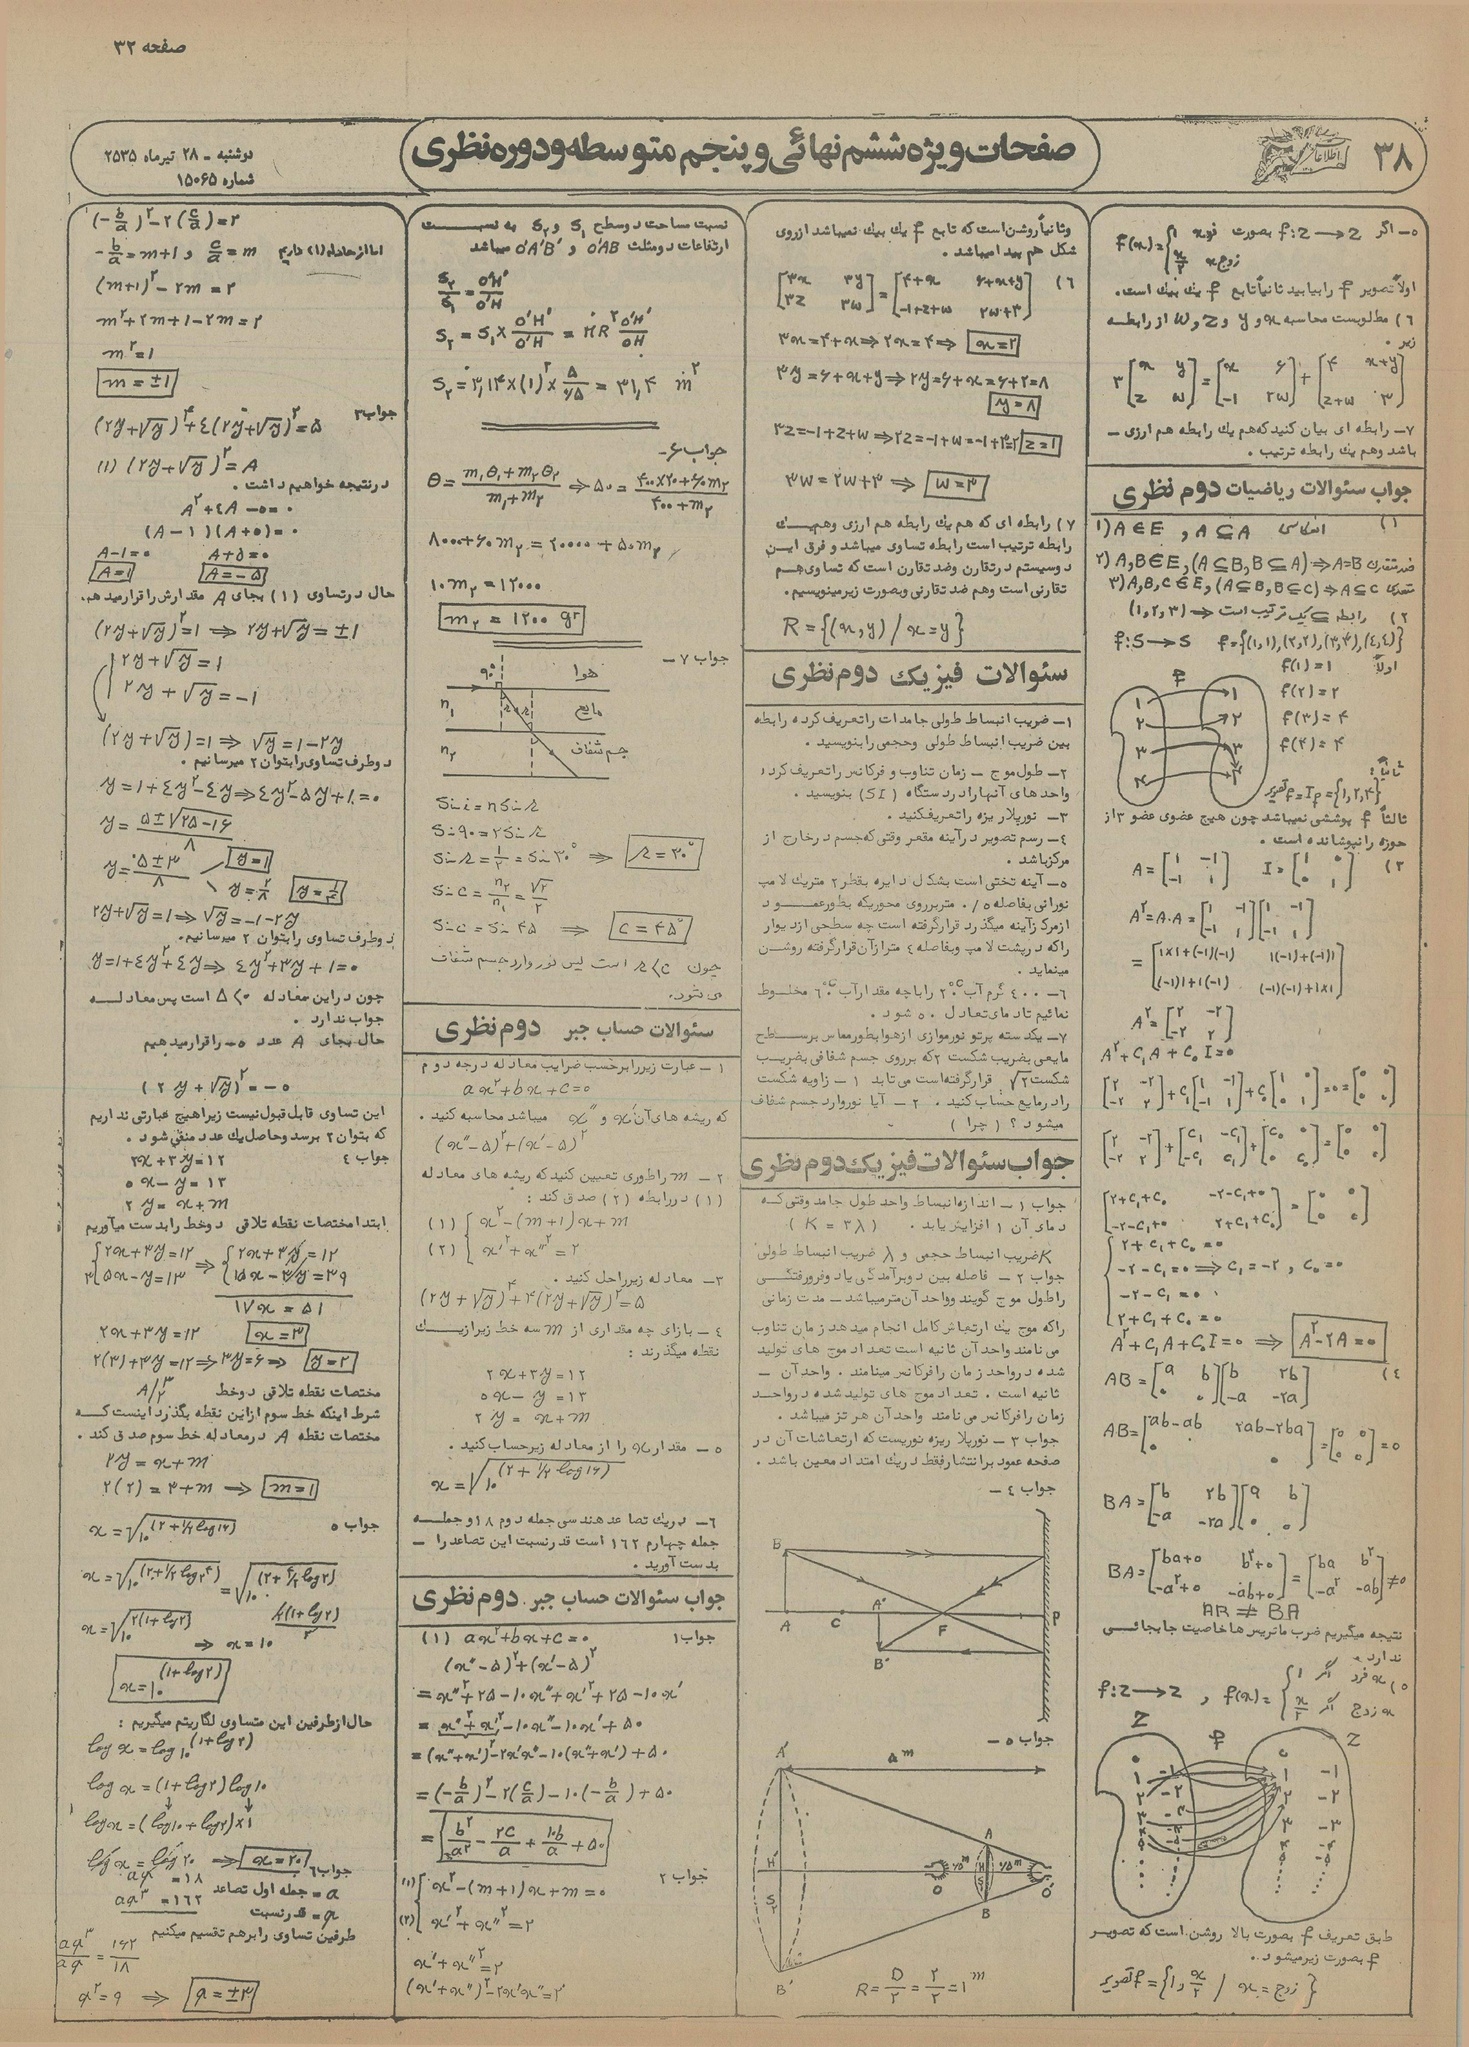 صفحه ۳۲
۳۸
اطلاعات
صفحات ویژه ششم نهائی و پنجم متوسطه و دوره نظری
دوشنبه - ۲۸ تیرماه ۲۵۳۵
شماره ۱۵۰۶۵
۵- اگر f:Z→Z بصورت
f(x)={۱ x فرد
x/۲ x زوج
اولاً تصویر f را بیابید ثانیاً تابع f یک بیک است.
۶) مطلوبست محاسبه x و y و z و w از رابطه
زیر .
۳[x y / z w]=[x ۶ / -۱ ۲w]+[۴ x+y / z+w ۳]
۷- رابطه ای بیان کنید که هم یک رابطه هم ارزی -
باشد وهم یک رابطه ترتیب .
جواب سئوالات ریاضیات دوم نظری
۱)
۱) A∈E , A⊆A انعکاسی
۲) A,B∈E,(A⊆B,B⊆A)⇒A=B ضد تقارنی
۳) A,B,C∈E,(A⊆B,B⊆C)⇒A⊆C تعدی
(۱,۲,۳) ⇒ رابطه ⊆ یک ترتیب است
۲)
f:S→S f={(۱,۱),(۲,۲),(۳,۴),(٤,٤)}
اولاً f(۱)=۱
f(۲)=۲
f(۳)=۴
f(۴)=۴
f
۱ ۲ ۳ ۴
۱ ۲ ۳ ۴
ثانیاً:
تصویر f=I_f={۱,۲,۴}
ثالثاً f پوششی نمیباشد چون هیچ عضوی عضو ۳ از
حوزه را نپوشانده است .
۳) A=[۱ -۱ / -۱ ۱] I=[۱ ۰ / ۰ ۱]
A²=A.A=[۱ -۱ / -۱ ۱][۱ -۱ / -۱ ۱]
=[۱×۱+(-۱)(-۱) ۱(-۱)+(-۱)۱ / (-۱)۱+۱(-۱) (-۱)(-۱)+۱×۱]
A²=[۲ -۲ / -۲ ۲]
A²+C₁A+C₀I=۰
[۲ -۲ / -۲ ۲]+C₁[۱ -۱ / -۱ ۱]+C₀[۱ ۰ / ۰ ۱]=۰=[۰ ۰ / ۰ ۰]
[۲ -۲ / -۲ ۲]+[C₁ -C₁ / -C₁ C₁]+[C₀ ۰ / ۰ C₀]=[۰ ۰ / ۰ ۰]
[۲+C₁+C₀ -۲-C₁+۰ / -۲-C₁+۰ ۲+C₁+C₀]=[۰ ۰ / ۰ ۰]
۲+C₁+C₀=۰
-۲-C₁=۰ ⇒ C₁=-۲ , C₀=۰
-۲-C₁=۰
۲+C₁+C₀=۰
A²+C₁A+C₀I=۰ ⇒ A²-۲A=۰
٤)
AB=[a b / ۰ ۰][b ۲b / -a -۲a]
AB=[ab-ab ۲ab-۲ba / ۰ ۰]=[۰ ۰ / ۰ ۰]=۰
BA=[b ۲b / -a -۲a][a b / ۰ ۰]
BA=[ba+۰ b²+۰ / -a²+۰ -ab+۰]=[ba b² / -a² -ab]≠۰
AB ≠ BA
نتیجه میگیریم ضرب ماتریس ها خاصیت جابجائی
ندارد.
۵) f:Z→Z , f(x)={۱ اگر x فرد
x/۲ اگر x زوج
Z f Z
طبق تعریف f بصورت بالا روشن است که تصویر
f بصورت زیر میشود .
تصویر f={۱ و x/۲ / x=زوج}
وثانیاً روشن است که تابع f یک بیک نمیباشد از روی
شکل هم پیدا میباشد .
۶) [۳x ۳y / ۳z ۳w]=[۴+x ۶+x+y / -۱+z+w ۲w+۳]
۳x=۴+x⇒۲x=۴⇒ x=۲
۳y=۶+x+y⇒۲y=۶+x=۶+۲=۸
y=۸
۳z=-۱+z+w⇒۲z=-۱+w=-۱+۳=۲ z=۱
۳w=۲w+۳ ⇒ w=۳
۷) رابطه ای که هم یک رابطه هم ارزی وهم یک
رابطه ترتیب است رابطه تساوی میباشد و فرق این
دو سیستم در تقارن وضد تقارن است که تساوی هم
تقارنی است وهم ضد تقارنی وبصورت زیر مینویسیم.
R={(x,y) / x=y}
سئوالات فیزیک دوم نظری
۱- ضریب انبساط طولی جامدات را تعریف کرده رابطه
بین ضریب انبساط طولی وحجمی را بنویسید .
۲- طول موج - زمان تناوب و فرکانس را تعریف کرده
واحد های آنها را در دستگاه (SI) بنویسید .
۳- نور پلاریزه را تعریف کنید .
٤- رسم تصویر در آینه مقعر وقتی که جسم در خارج از
مرکز باشد .
۵- آینه تختی است بشکل دایره بقطر ۲ متر یک لامپ
نورانی بفاصله ۰/۵ متر برروی محوریکه بطور عمود
از مرکز آینه میگذرد قرار گرفته است چه سطحی از دیوار
را که در پشت لامپ وبفاصله ٤ متر از آن قرار گرفته روشن
مینماید .
۶- ٤۰۰ گرم آب ۲۰°C را با چه مقدار آب ۶۰°C مخلوط
نمائیم تا دمای تعادل ۵۰ شود .
۷- یکدسته پرتو نور موازی از هوا بطور مماس بر سطح
مایعی بضریب شکست ۲ که برروی جسم شفافی بضریب
شکست √۲ قرار گرفته است می تابد ۱ - زاویه شکست
را در مایع حساب کنید . ۲ - آیا نور وارد جسم شفاف
میشود ؟ ( چرا )
جواب سئوالات فیزیک دوم نظری
جواب ۱ - اندازه انبساط واحد طول جامد وقتی که
دمای آن ۱ افزایش یابد . ( K = ۳λ )
K ضریب انبساط حجمی و λ ضریب انبساط طولی
جواب ۲ - فاصله بین دو برآمدگی یا دو فرورفتگی
را طول موج گویند و واحد آن متر میباشد - مدت زمانی
را که موج یک ارتعاش کامل انجام میدهد زمان تناوب
می نامند واحد آن ثانیه است تعداد موج های تولید
شده در واحد زمان را فرکانس مینامند . واحد آن -
ثانیه است . تعداد موج های تولید شده در واحد
زمان را فرکانس می نامند واحد آن هرتز میباشد .
جواب ۳ - نور پلاریزه نوریست که ارتعاشات آن در
صفحه عمود بر انتشار فقط در یک امتداد معین باشد .
جواب ٤ -
B A C A' B' F P
جواب ۵ -
A' ۵ᵐ A H' H S₂ S₁ O O' B B'
R=D/۲=۲/۲=۱ᵐ
نسبت مساحت دو سطح S₁ و S₂ به نسبت
ارتفاعات دو مثلث O'AB و O'A'B' میباشد
S₂/S₁=O'H'/O'H
S₂=S₁×O'H'/O'H=πR² O'H'/OH
S₂=۳,۱۴×(۱)²×۵/۰/۵=۳۱,۴ m²
جواب ۶-
θ=(m₁θ₁+m₂θ₂)/(m₁+m₂) ⇒ ۵۰=(۴۰۰×۲۰+۶۰m₂)/(۴۰۰+m₂)
۸۰۰۰+۶۰m₂=۲۰۰۰۰+۵۰m₂
۱۰m₂=۱۲۰۰۰
m₂=۱۲۰۰ gr
جواب ۷-
۹۰° هوا
n₁ مایع
n₂ جسم شفاف
Sin i=n Sin r
Sin ۹۰=۲ Sin r
Sin r=۱/۲=Sin ۳۰° ⇒ r=۳۰°
Sin C=n₂/n₁=√۲/۲
Sin C=Sin ۴۵ ⇒ C=۴۵°
چون r<c است پس نور وارد جسم شفاف
می شود.
سئوالات حساب جبر دوم نظری
۱- عبارت زیر را برحسب ضرایب معادله درجه دوم
ax²+bx+c=۰
که ریشه های آن x' و x'' میباشد محاسبه کنید .
(x''-۵)²+(x'-۵)²
۲- m را طوری تعیین کنید که ریشه های معادله
(۱) در رابطه (۲) صدق کند :
(۱) x²-(m+۱)x+m
(۲) x'²+x''²=۲
۳- معادله زیر را حل کنید .
(۲y+√y)⁴+۴(۲y+√y)²=۵
٤- بازای چه مقداری از m سه خط زیر از یک
نقطه میگذرند :
۲x+۳y=۱۲
۵x-y=۱۳
۲y=x+m
۵- مقدار x را از معادله زیر حساب کنید .
x=√۱۰^(۲+۱/۲ log۱۶)
۶- در یک تصاعد هندسی جمله دوم ۱۸ و جمله
جمله چهارم ۱۶۲ است قدر نسبت این تصاعد را -
بدست آورید .
جواب سئوالات حساب جبر . دوم نظری
جواب ۱ (۱) ax²+bx+c=۰
(x''-۵)²+(x'-۵)²
=x''²+۲۵-۱۰x''+x'²+۲۵-۱۰x'
=x''²+x'²-۱۰x''-۱۰x'+۵۰
=(x''+x')²-۲x'x''-۱۰(x''+x')+۵۰
=(-b/a)²-۲(c/a)-۱۰(-b/a)+۵۰
=b²/a²-۲c/a+۱۰b/a+۵۰
جواب ۲
(۱) x²-(m+۱)x+m=۰
(۲) x'²+x''²=۲
x'²+x''²=۲
(x'+x'')²-۲x'x''=۲
(-b/a)²-۲(c/a)=۲
اما از معادله (۱) داریم c/a=m و -b/a=m+۱
(m+۱)²-۲m=۲
m²+۲m+۱-۲m=۲
m²=۱
m=±۱
جواب ۳
(۲y+√y)⁴+٤(۲y+√y)²=۵
(۱) (۲y+√y)²=A
در نتیجه خواهیم داشت .
A²+٤A-۵=۰
(A-۱)(A+۵)=۰
A-۱=۰ A+۵=۰
A=۱ A=-۵
حال در تساوی (۱) بجای A مقدارش را قرار میدهیم.
(۲y+√y)²=۱ ⇒ ۲y+√y=±۱
۲y+√y=۱
۲y+√y=-۱
(۲y+√y)=۱⇒√y=۱-۲y
دو طرف تساوی را بتوان ۲ میرسانیم .
y=۱+٤y²-٤y⇒٤y²-۵y+۱=۰
y=(۵±√۲۵-۱۶)/۸
y=(۵±۳)/۸ y=۱
y=۲/۸ y=۱/۴
۲y+√y=۱⇒√y=-۱-۲y
دو طرف تساوی را بتوان ۲ میرسانیم.
y=۱+٤y²+٤y⇒٤y²+۳y+۱=۰
چون در این معادله Δ<۰ است پس معادله
جواب ندارد .
حال بجای A عدد ۵- را قرار میدهیم
(۲y+√y)²=-۵
این تساوی قابل قبول نیست زیرا هیچ عبارتی نداریم
که بتوان ۲ برسد وحاصل یک عدد منفی شود .
جواب ٤ ۲x+۳y=۱۲
۵x-y=۱۳
۲y=x+m
ابتدا مختصات نقطه تلاقی دو خط را بدست میآوریم
{۲x+۳y=۱۲ ⇒ {۲x+۳y=۱۲
۳{۵x-y=۱۳ {۱۵x-۳y=۳۹
۱۷x=۵۱
۲x+۳y=۱۲ x=۳
۲(۳)+۳y=۱۲⇒۳y=۶⇒ y=۲
مختصات نقطه تلاقی دو خط A|۳ ۲
شرط اینکه خط سوم از این نقطه بگذرد اینست که
مختصات نقطه A در معادله خط سوم صدق کند .
۲y=x+m
۲(۲)=۳+m ⇒ m=۱
جواب ۵ x=√۱۰^(۲+۱/۲ log۱۶)
x=√۱۰^(۲+۱/۲ log۲⁴)=√۱۰^(۲+۴/۲ log۲)
x=√۱۰^۲(۱+log۲) ⇒ x=۱۰^۲(۱+log۲)/۲
x=۱۰^(۱+log۲)
حال از طرفین این متساوی لگاریتم میگیریم :
log x=log ۱۰^(۱+log۲)
log x=(۱+log۲)log۱۰
log x=(log۱۰+log۲)×۱
log x=log ۲۰ ⇒ x=۲۰
جواب ۶ aq=۱۸
a= جمله اول تصاعد
aq³=۱۶۲
q= قدر نسبت
طرفین تساوی را برهم تقسیم میکنیم
aq³/aq=۱۶۲/۱۸
q²=۹ ⇒ q=±۳